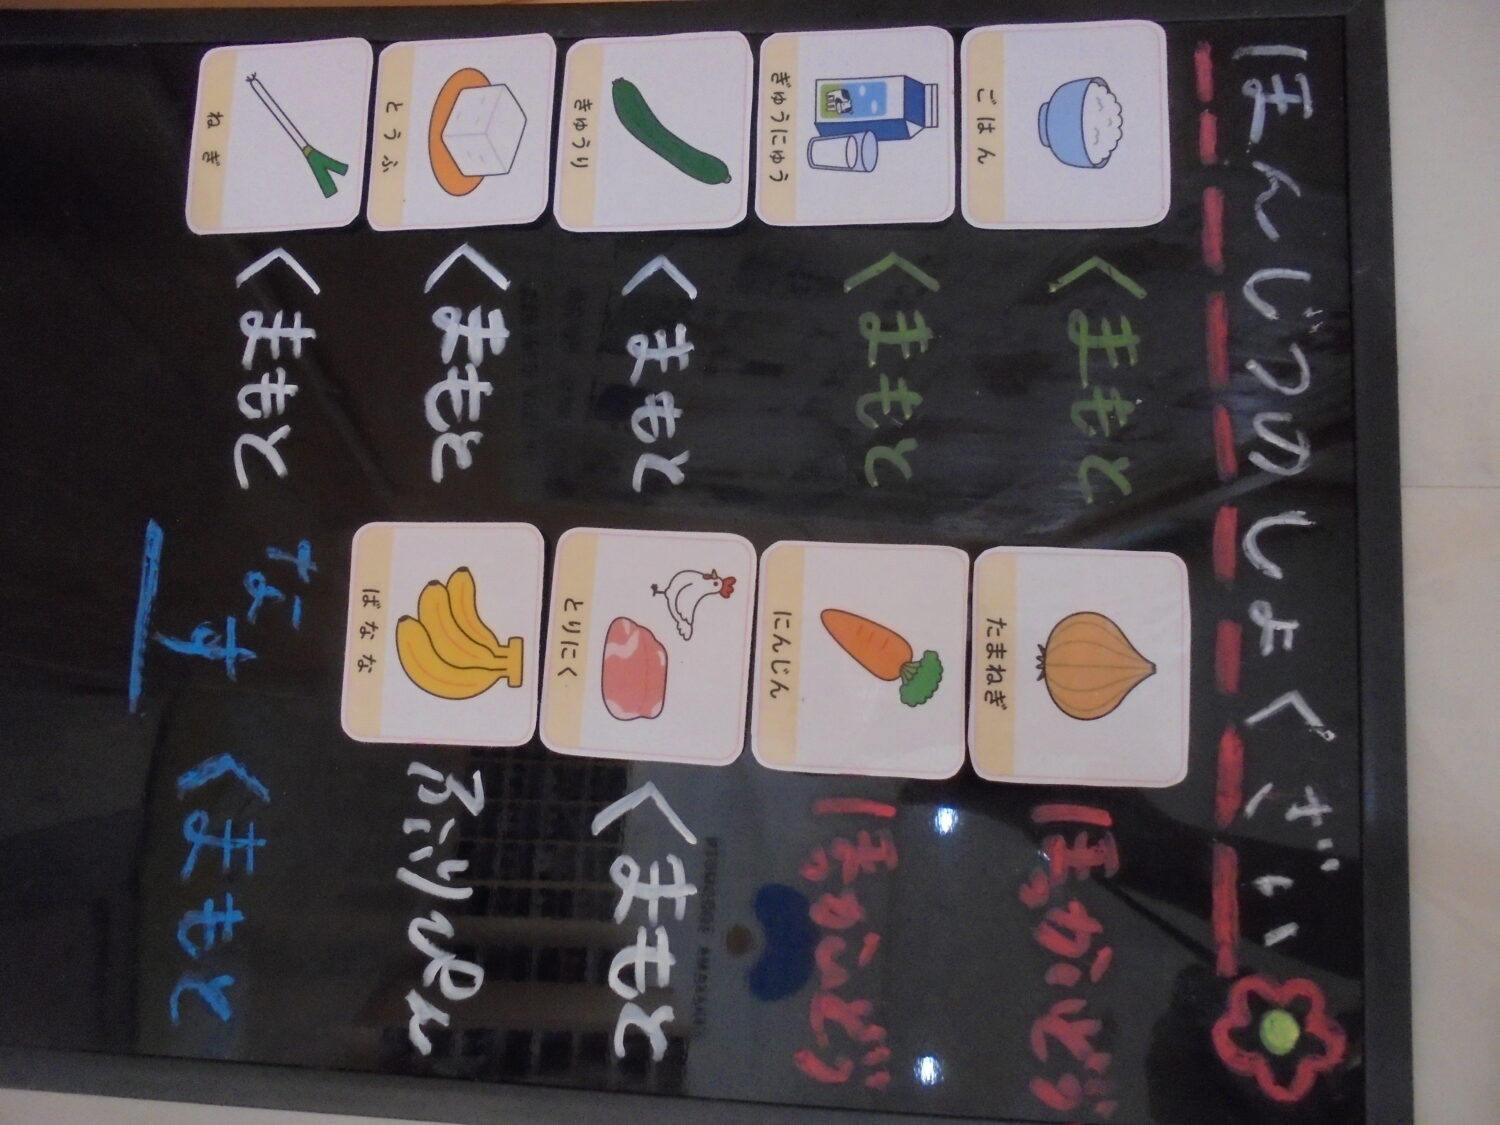 ほんじつのしょくざい
ごはん くまもと
ぎゅうにゅう くまもと
きゅうり くまもと
とうふ くまもと
ねぎ くまもと
たまねぎ ほっかいどう
にんじん ほっかいどう
とりにく くまもと
ばなな ふぃりぴん
なす くまもと